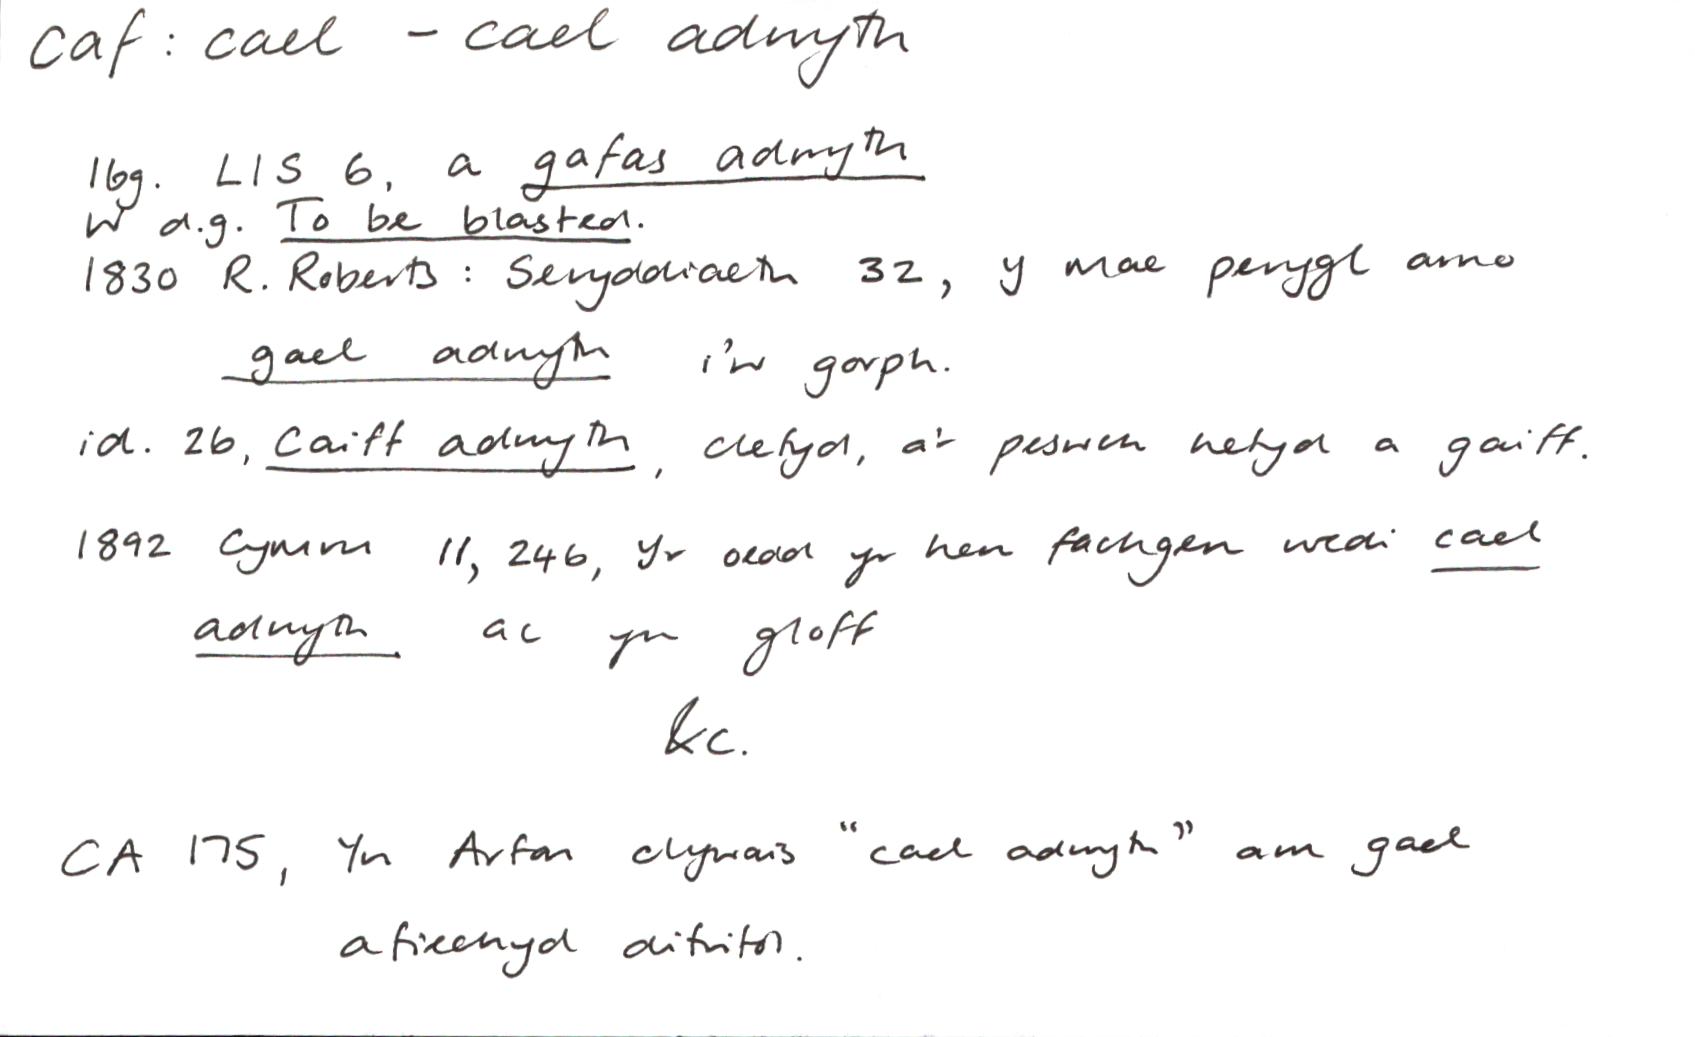 caf : cael - cael adwyth
16g. LlS 6, a gafas adwyth
W d.g. To be blasted.
1830 R. Roberts : Seryddiaeth 32, y mae perygl arno
gael adwyth i'w gorph.
id. 26, Caiff adwyth, clefyd, a'r peswch hefyd a gaiff.
1892 Cymru 11, 246, Yr oedd yr hen fachgen wedi cael
adwyth ac yn gloff
&c.
CA 175, Yn Arfon clywais "cael adwyth" am gael
afiechyd difrifol.